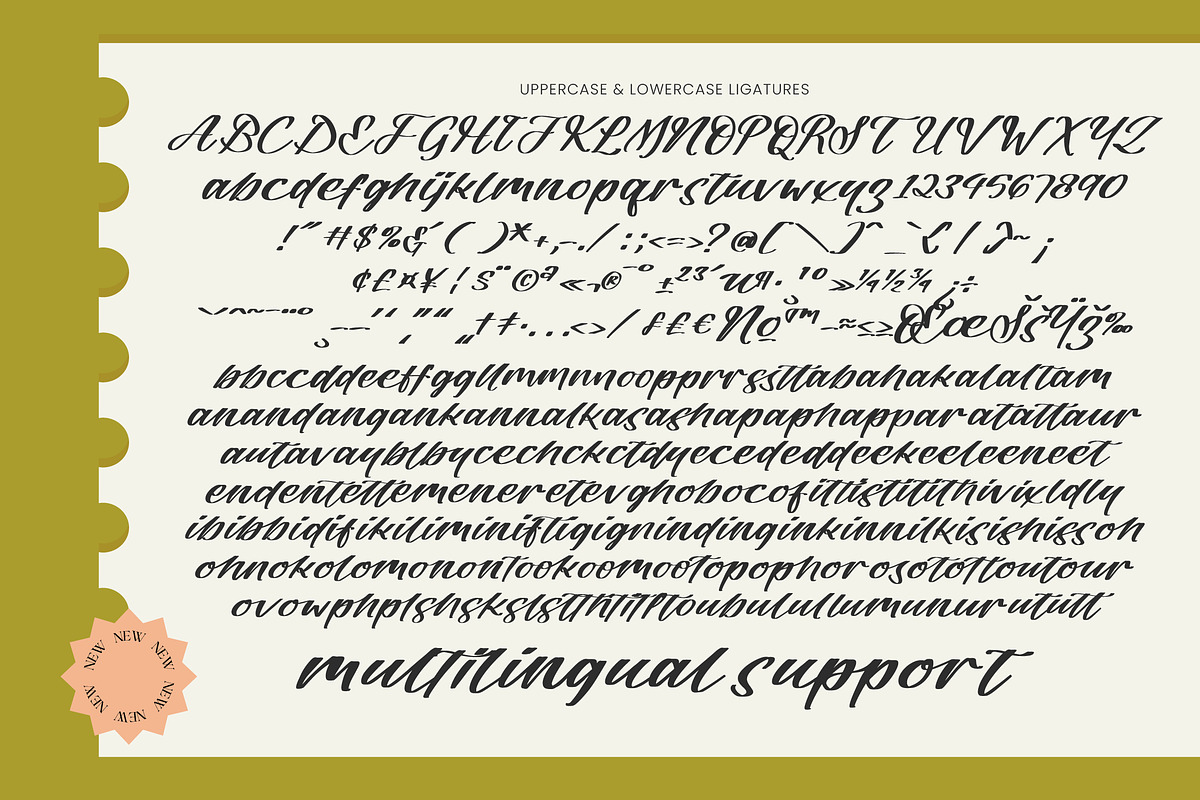 UPPERCASE & LOWERCASE LIGATURES
ABCDEFGHIJKLMNOPQRSTUVWXYZ
abcdefghijklmnopqrstuvwxyz1234567890
!"#$%&'()*+,-./:;<=>?@[\]^_`{|}~¡
¢£¤¥¦§¨©ª«¬®¯°±²³´µ¶·¹º»¼½¾¿÷
‘’‚“”„†‡·...<>/₣£€№™-≈≤≥ŒœŠšŸž‰
bbccddeeffggllmmnnoopprrssttabahakalaltam
anandangankannalkasashapaphapparatattaur
autavayblbycechckctdyecededdeekeeleeneet
endentettemeneretevghobocofittistitithivixldly
ibibbidifikiliminiftigignindinginkinnilkisishissoh
ohnokolomonontookoomootopophorosotottoutour
ovowphplshskslstthtitltoubulullumunurututt
multilingual support
NEW NEW NEW NEW NEW NEW NEW